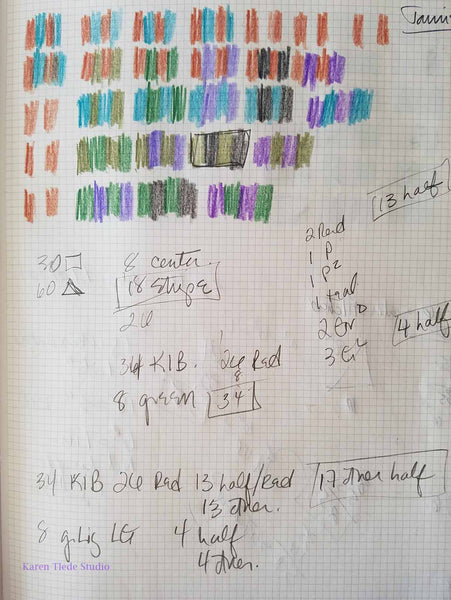 13 half
2 Red
1 P
1 P2
1 teal
2 Gr D
3 G L
4 half
30 □
60 △
8 center.
18 Stripe
26
34 KIB. 26 Red
8
8 green 34
34 KIB 26 Red 13 half/Red 17 other half
13 other.
8 LG 4 half
4 other.
Karen Tiede Studio